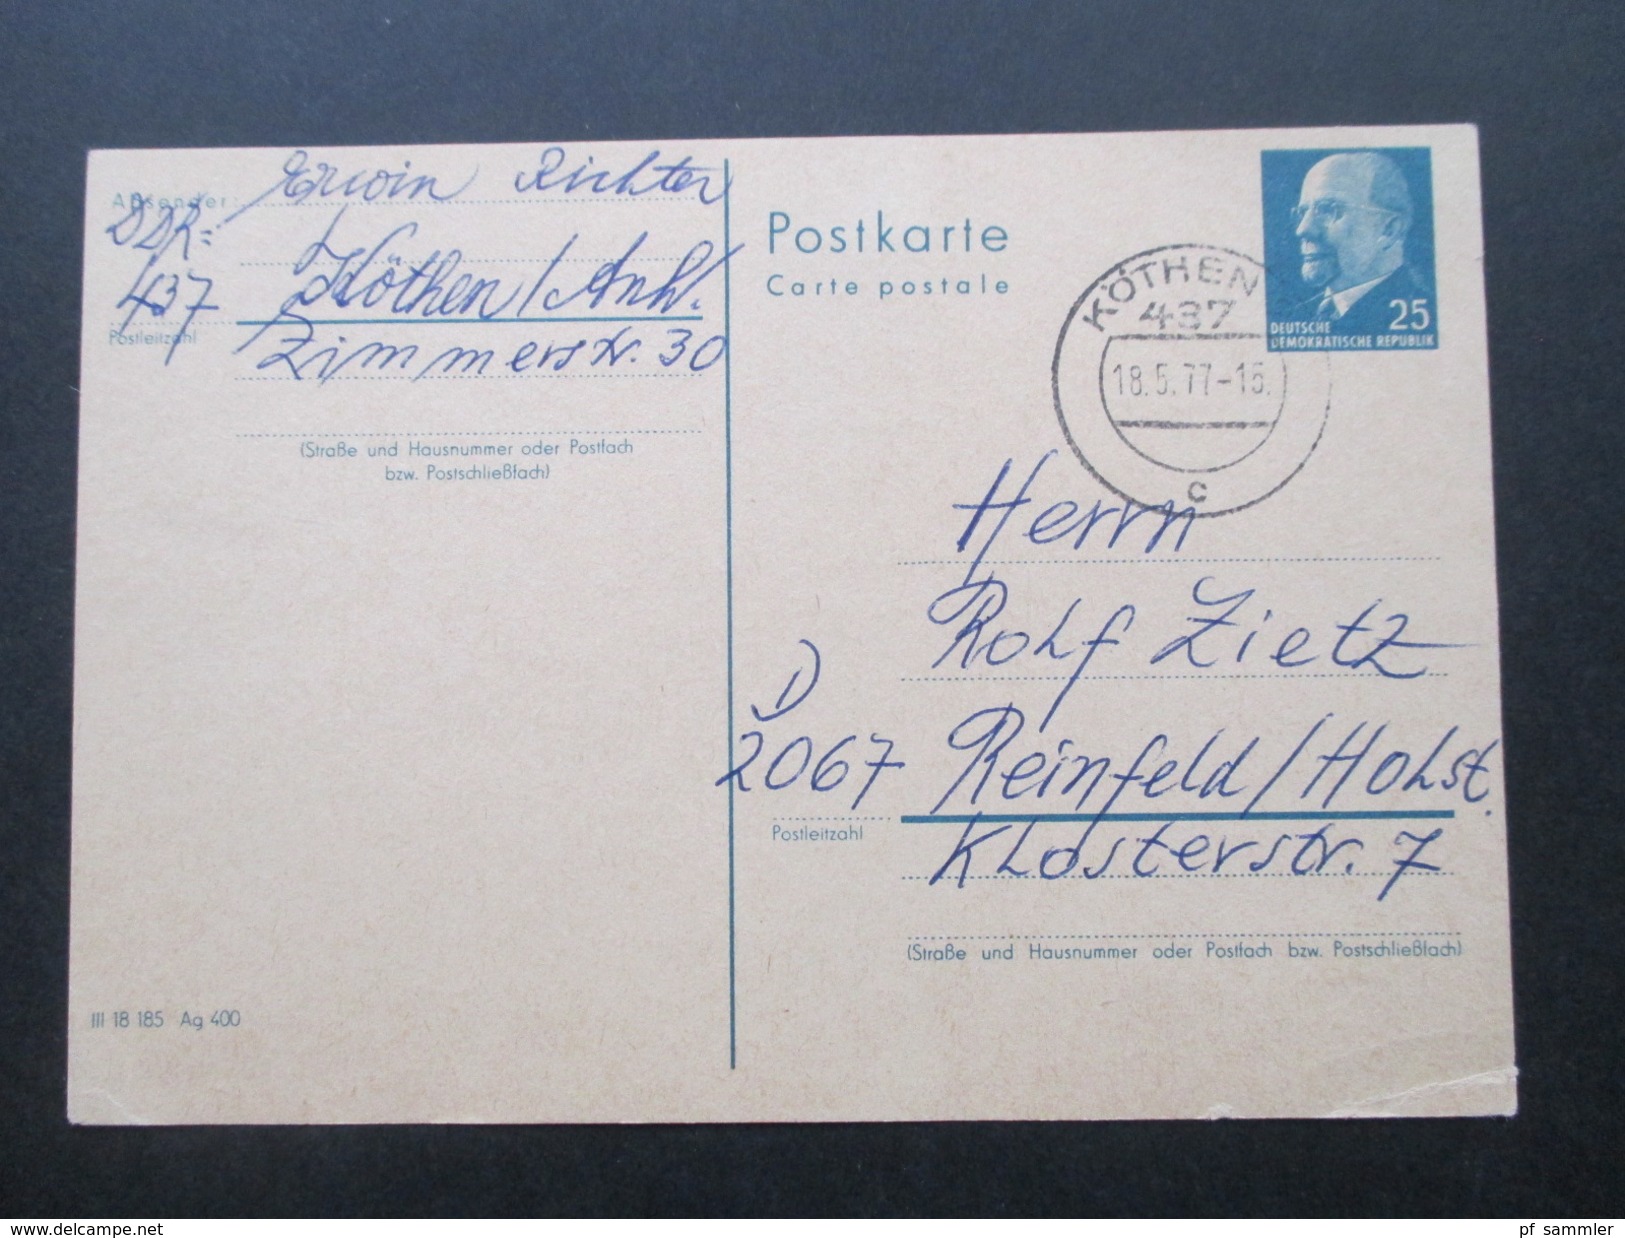 Absender:
Erwin Richter
DDR-
437 Köthen/Anh.
Postleitzahl
Zimmerstr. 30
(Straße und Hausnummer oder Postfach
bzw. Postschließfach)
III 18 185 Ag 400
Postkarte
Carte postale
KÖTHEN
437
18.5.77-15.
c
25
DEUTSCHE
DEMOKRATISCHE REPUBLIK
Herrn
Rolf Zietz
D
2067 Reinfeld/Holst.
Postleitzahl
Klosterstr. 7
(Straße und Hausnummer oder Postfach bzw. Postschließfach)
www.delcampe.net
pf_sammler